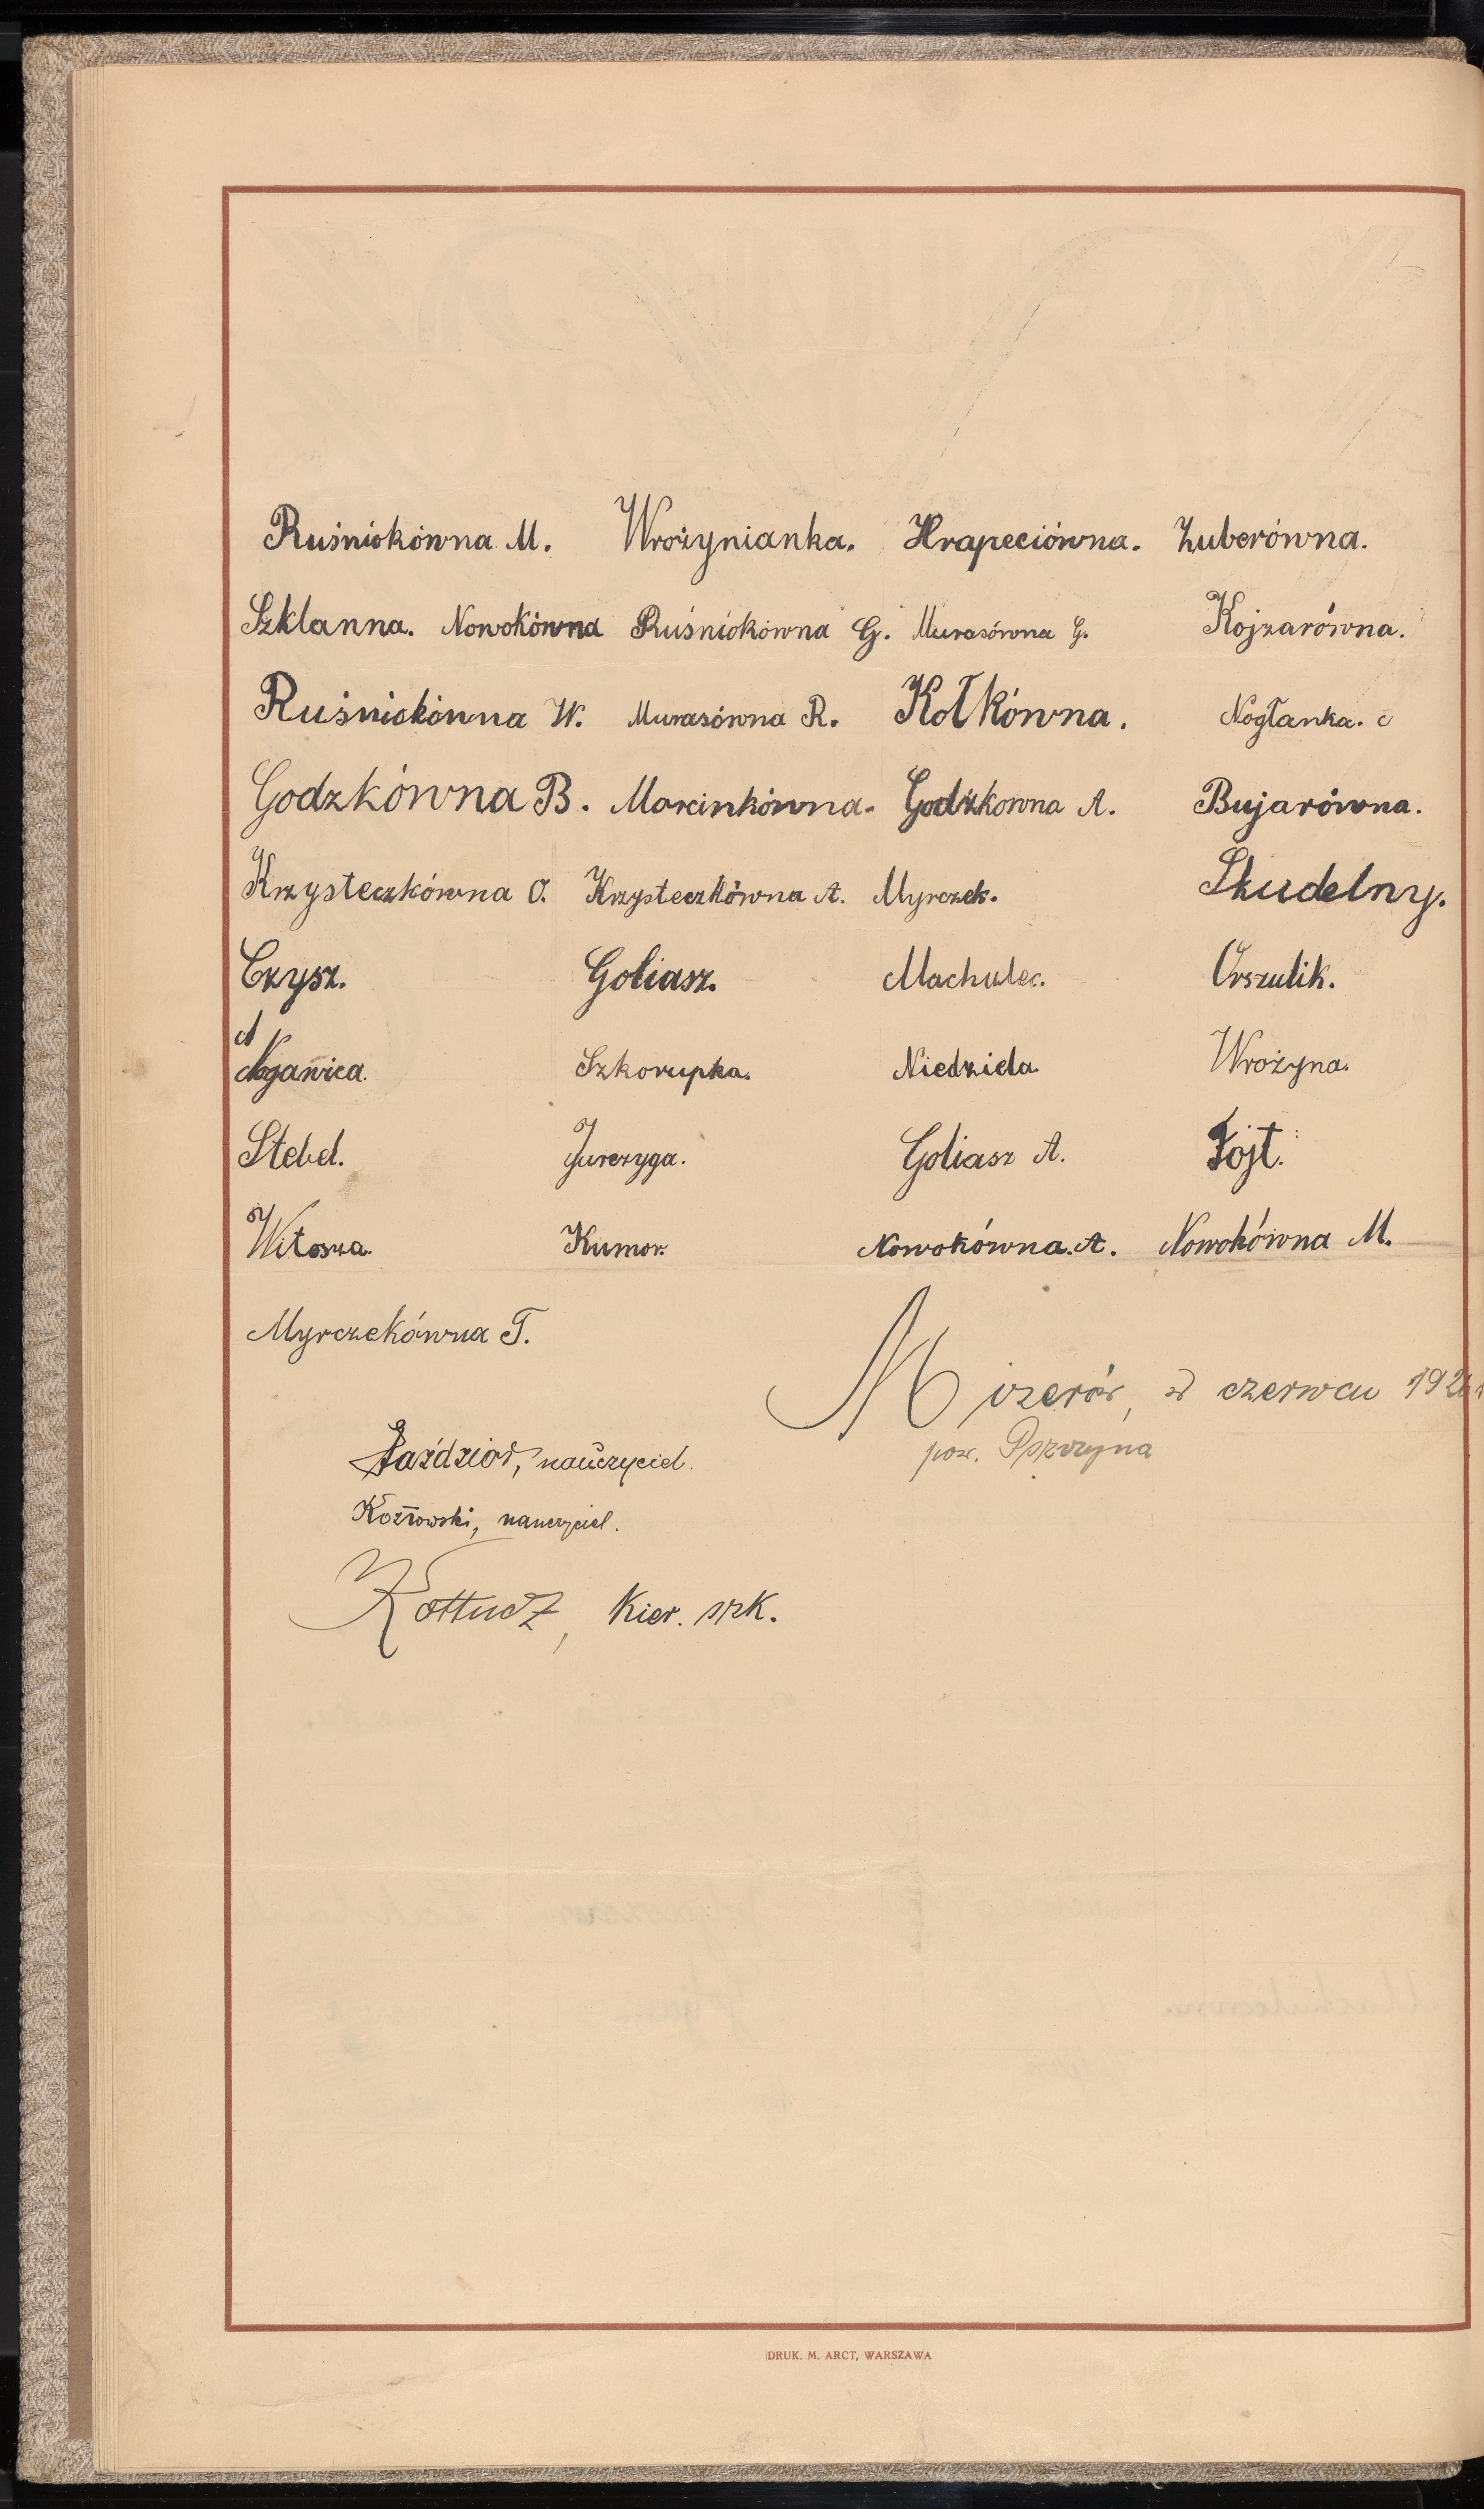 Ruśniokówna M. Wrożynianka. Hrapeciówna. Zuberówna.
Szklanna. Nowokówna Ruśniokówna G. Murasówna G. Kojzarówna.
Ruśniokówna W. Murasówna R. Kołkówna. Nogłanka.
Godzkówna B. Marcinkówna. Godzkowna A. Bujarówna.
Krzysteczkówna O. Krzysteczkówna A. Myrczek. Skudelny.
Czysz. Goliasz. Machulec. Orszulik.
Nogawica. Szkorupka. Niedziela. Wrożyna.
Stebel. Jurczyga. Goliasz A. Fojt.
Witosza. Kumor. Nowokówna. A. Nowokówna M.
Myrczekówna T.
Mizerów, w czerwcu
pow. Pszczyna
Paździor, nauczyciel.
Kozłowski, nauczyciel.
Kier. szk.
DRUK. M. ARCT, WARSZAWA